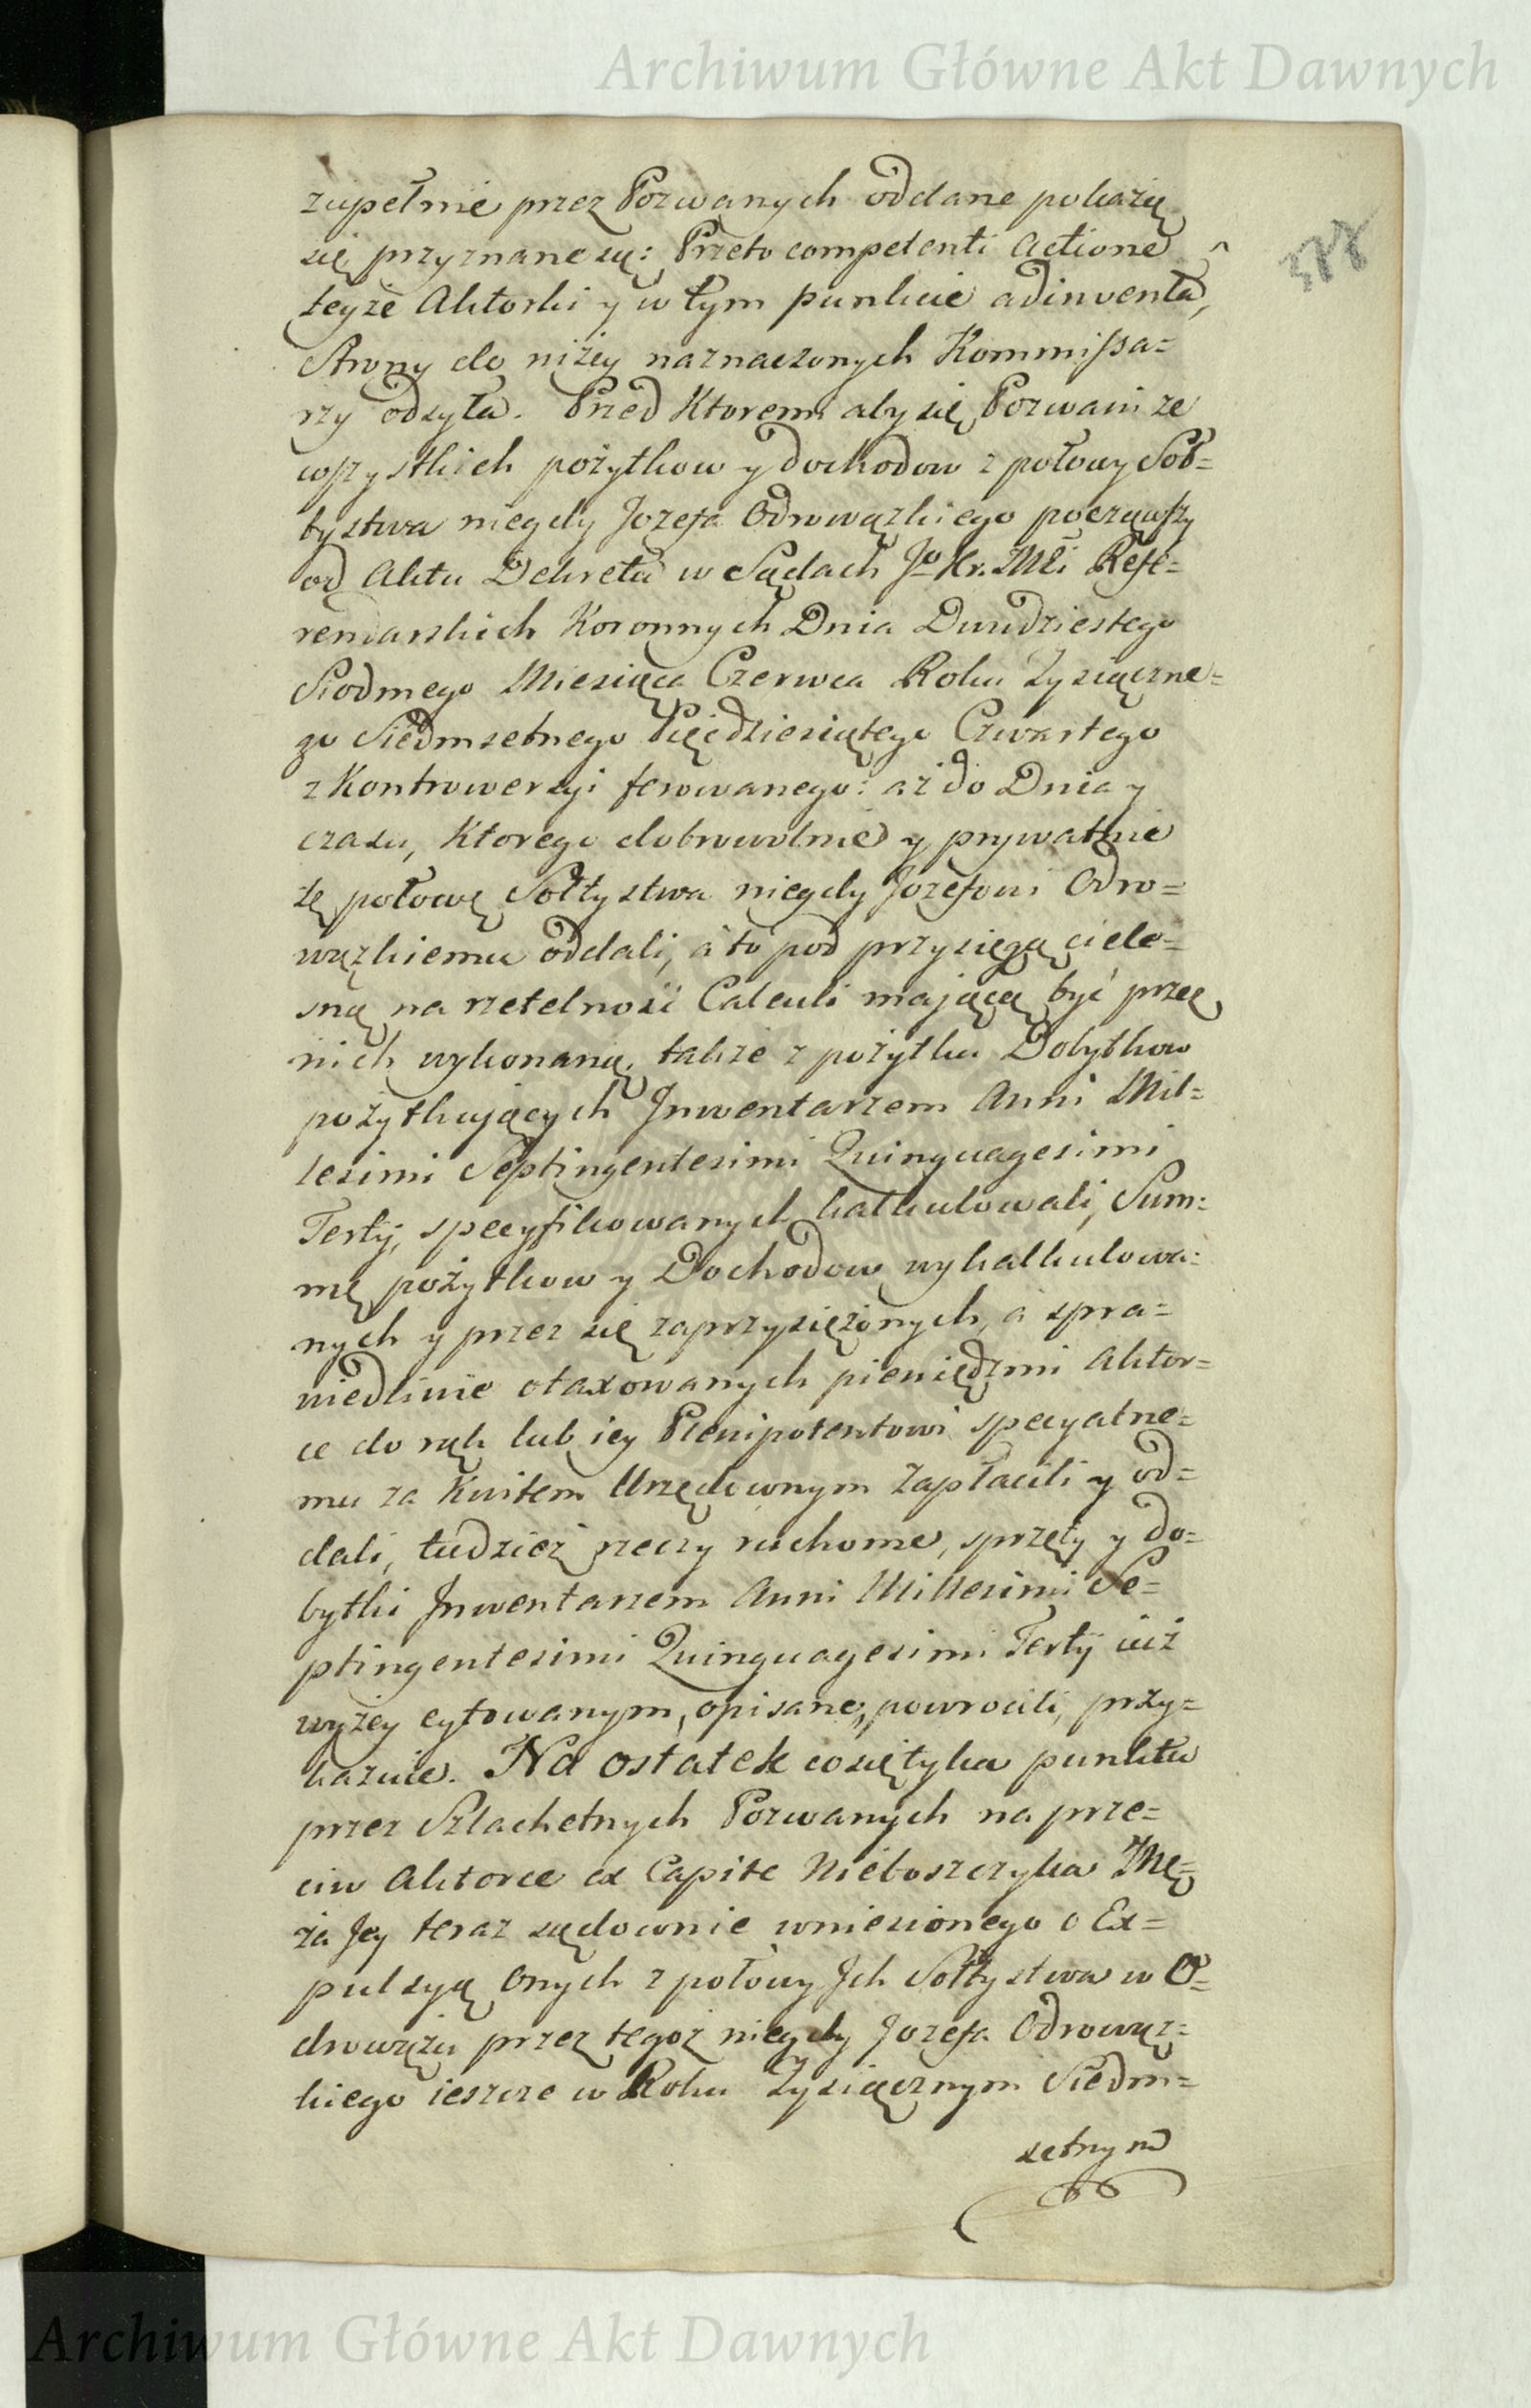 Archiwum Główne Akt Dawnych
zupełnie przez Pozwanych oddane pokażą
się przyznane są: Przeto competenti Actione
teyże Aktorki y w tym punkcie adinventa,
Strony do niżey naznaczonych Kommissa=
rzy odsyła. Przed Ktoremi aby się Pozwani ze
wszystkich pożytkow y dochodow z połowy Soł=
tystwa niegdy Jozefa Odrowązkiego począwszy
od Aktu Dekretu w Sądach Jo Kr. Mci Refe=
rendarskich Koronnych Dnia Dwudziestego
Siodmego Miesiąca Czerwca Roku Tysiączne=
go Siedmsetnego Pięćdziesiątego Czwartego
z Kontrowersyi ferowanego: aż do Dnia y
czasu, Ktorego dobrowolnie y prywatnie
tę połowę Sołtystwa niegdy Jozefowi Odro=
wązkiemu oddali, a to pod przysięgą ciele=
sną na rzetelność Calculi mającą być przez
nich wykonaną, także z pożytku Dobytkow
pożytkujących Inwentarzem Anni Mil=
lesimi Septingentesimi Quinquagesimi
Tertij, specyfikowanych kalkulowali, Sum=
mę pożytkow y Dochodow wykalkulowa=
nych y przez się zaprzysiężonych, a spra=
wiedliwie otaxowanych pieniędzmi Aktor=
ce do rąk lub iey Plenipotentowi specyalne=
mu za Kwitem Urzędownym zapłacili y od=
dali, tudzież rzeczy ruchome, sprzęty y do=
bytki Inwentarzem Anni Millesimi Se=
ptingentesimi Quinquagesimi Tertij iuż
wyżey cytowanym, opisane, powrocili, przy=
kazuie. Na ostatek co się tyka punktu
przez Szlachetnych Pozwanych na prze=
ciw Aktorce ex Capite Nieboszczyka Mę=
ża Jey teraz sądownie wniesionego o Ex=
pulsyą Onych z połowy Ich Sołtystwa w O=
drowążu przez tegoż niegdy Jozefa Odrowąz=
kiego ieszcze w Roku Tysiącznym Siedm=
setnym
Archiwum Główne Akt Dawnych